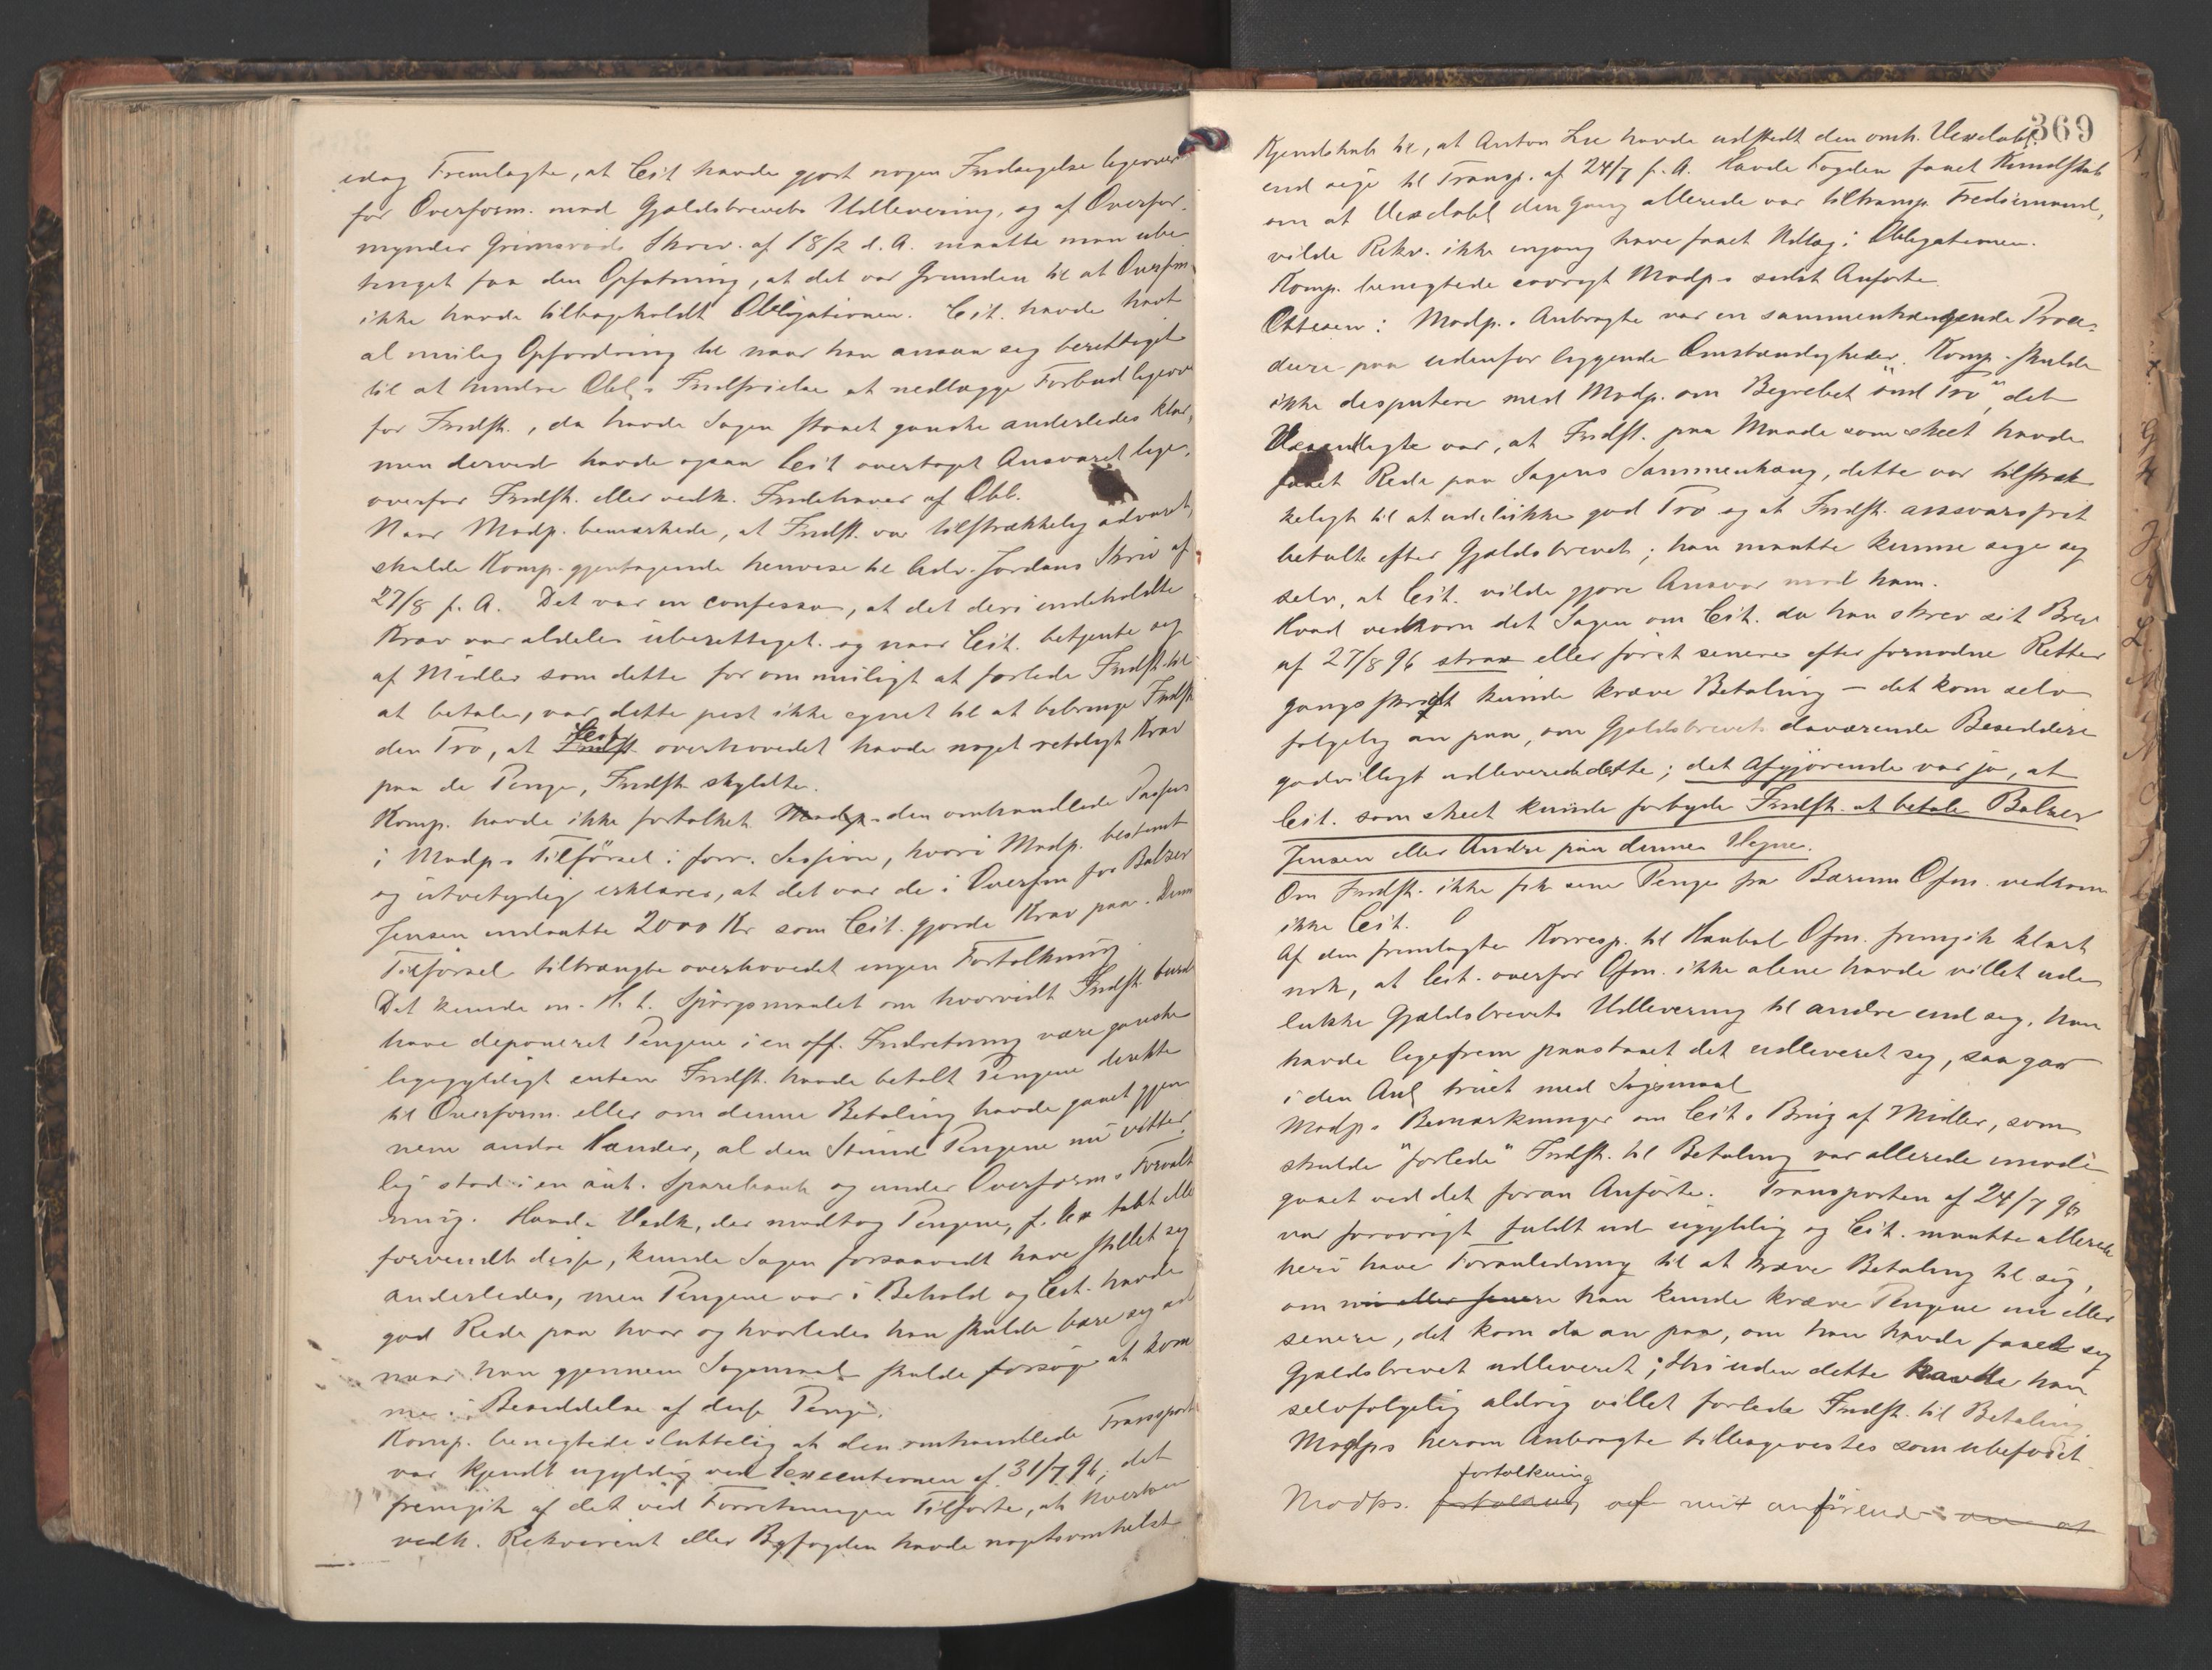 idag Fremlagte, at Cit. havde gjort nogen Indsigelse ligeover
for Overform. mod Gjældsbrevets Udlevering, og af Overfor-
mynder Grimsrøds Skriv. af 18/2 d. A. maatte man ube-
tinget faa den Opfatning, at det var Grunden til at Overfm.
ikke havde tilbageholdt Obligationen. Cit. havde havt
al mulig Opfordring til naar han ansaa sig berettiget
til at hindre Obl.s Indfrielse at nedlægge Forbud ligeover
for Indst., da havde Sagen staaet ganske anderledes klar,
men derved havde ogsaa Cit. overtaget Ansvaret lige-
overfor Indst. eller vedk. Indehaver af Obl.
Naar Modp. bemærkede, at Indst. var tilstrækkelig advaret,
skulde Komp. gjentagende henvise til Adv. Jordans Skriv. af
27/8 f. A. Det var in confesso, at det deri indeholdte
Krav var aldeles uberettiget og naar Cit. betjente sig
af Midler som dette for om muligt at forlede Indst. til
at betale, var dette just ikke egnet til at bibringe Indst.
den Tro, at Cit. Indst. overhovedet havde noget retsligt Krav
paa de Penge, Indst. skyldte.
Komp. havde ikke fortolket Modp. den omhandlede Passus
i Modp.s Tilførsel i forr. Session, hvori Modp. bestemt
og utvetydig erklærer, at det var de i Overfm. for Balzer
Jensen indsatte 2000 Kr. som Cit. gjorde Krav paa. Denne
Tilførsel tiltrængte overhovedet ingen Fortolkning.
Det kunde m. H. t. Spørgsmaalet om hvorvidt Indst. burde
have deponeret Pengene i en off. Indretning være ganske
ligegyldigt enten Indst. havde betalt Pengene direkte
til Overform. eller om denne Betaling havde gaaet gjen-
nem andre Hænder, al den Stund Pengene nu vitter-
lig stod i en aut. Sparebank og under Overform.s Forvalt-
ning. Havde Vedk., der modtog Pengene, f. Ex. tabt eller
forvendt disse, kunde Sagen forsaavidt have stillet sig
anderledes, men Pengene var i Behold og Cit. havde
god Rede paa hvor og hvorledes han skulde bære sig ad
naar han gjennem Søgsmaal skulde forsøge at kom-
me i Besiddelse af disse Penge.
Komp. benegtede sluttelig at den omhandlede Transport
var kjendt ugyldig ved Executionen af 31/7 96; det
fremgik af det ved Forretningen Tilførte, at hverken
vedk. Rekvirent eller Byfogden havde nogetsomhelst
369
Kjendskab til, at Anton Lie havde udstedt den omh. Vexelobl.
end sige til Transp. af 24/7 f. A. Havde Fogden faaet Kundskab
om at Vexelobl. dengang allerede var tiltransp. Trediemand,
vilde Rekv. ikke engang have faaet Udlæg i Obligationen.
Komp. benegtede øvrigt Modp.s sidst Anførte.
Ottesen: Modp.s Anbragte var en sammenhængende Proce-
dure paa udenfor liggende Omstændigheder. Komp. skulde
ikke disputere med Modp. om Begrebet "ond Tro", det
Væsentligste var, at Indst. paa Maade som skeet havde
faaet Rede paa Sagens Sammenhæng, dette var tilstræk-
keligt til at udelukke god Tro og at Indst. ansvarsfrit
betalte efter Gjældsbrevet; han maatte kunne sige sig
selv, at Cit. vilde gjøre Ansvar mod ham.
Hvad vedkom det Sagen om Cit. da han skrev sit Brev
af 27/8 96 strax eller først senere efter fornødne Retter-
gangsskridt kunde kræve Betaling – det kom selv-
følgelig an paa, om Gjældsbrevets daværende Besiddere
godvilligt udleverede dette; det afgjørende var jo, at
Cit. som skeet kunde forbyde Indst. at betale Balzer
Jensen eller Andre paa dennes Vegne.
Om Indst. ikke fik sine Penge fra Bærum Ofm. vedkom
ikke Cit.
Af den fremlagte Korresp. til Ofm. fremgik klart
nok, at Cit. overfor Ofm. ikke alene havde villet ude-
lukke Gjældsbrevets Udlevering til andre end sig, han
havde ligefrem paastaaet det udleveret sig, saagar
i den Anl. truet med Søgsmaal.
Modp.s Bemærkninger om Cit.s Brug af Midler, som
skulde "forlede" Indst. til Betaling var allerede imøde-
gaaet ved det foran Anførte. Transporten af 24/7 96
var forøvrigt fuldt ud ugyldig og Cit. maatte allerede
heri have Foranledning til at kræve Betaling til sig,
om nu eller senere han kunde kræve Pengene nu eller
senere, det kom da an paa, om han havde faaet sig
Gjældsbrevet udleveret; thi uden dette havde han
selvfølgelig aldrig villet forlede Indst. til Betaling.
Modps herom Anbragte tilbagevistes som ubeføiet.
Modps. fortolkning fortolkning af mit anførende om at